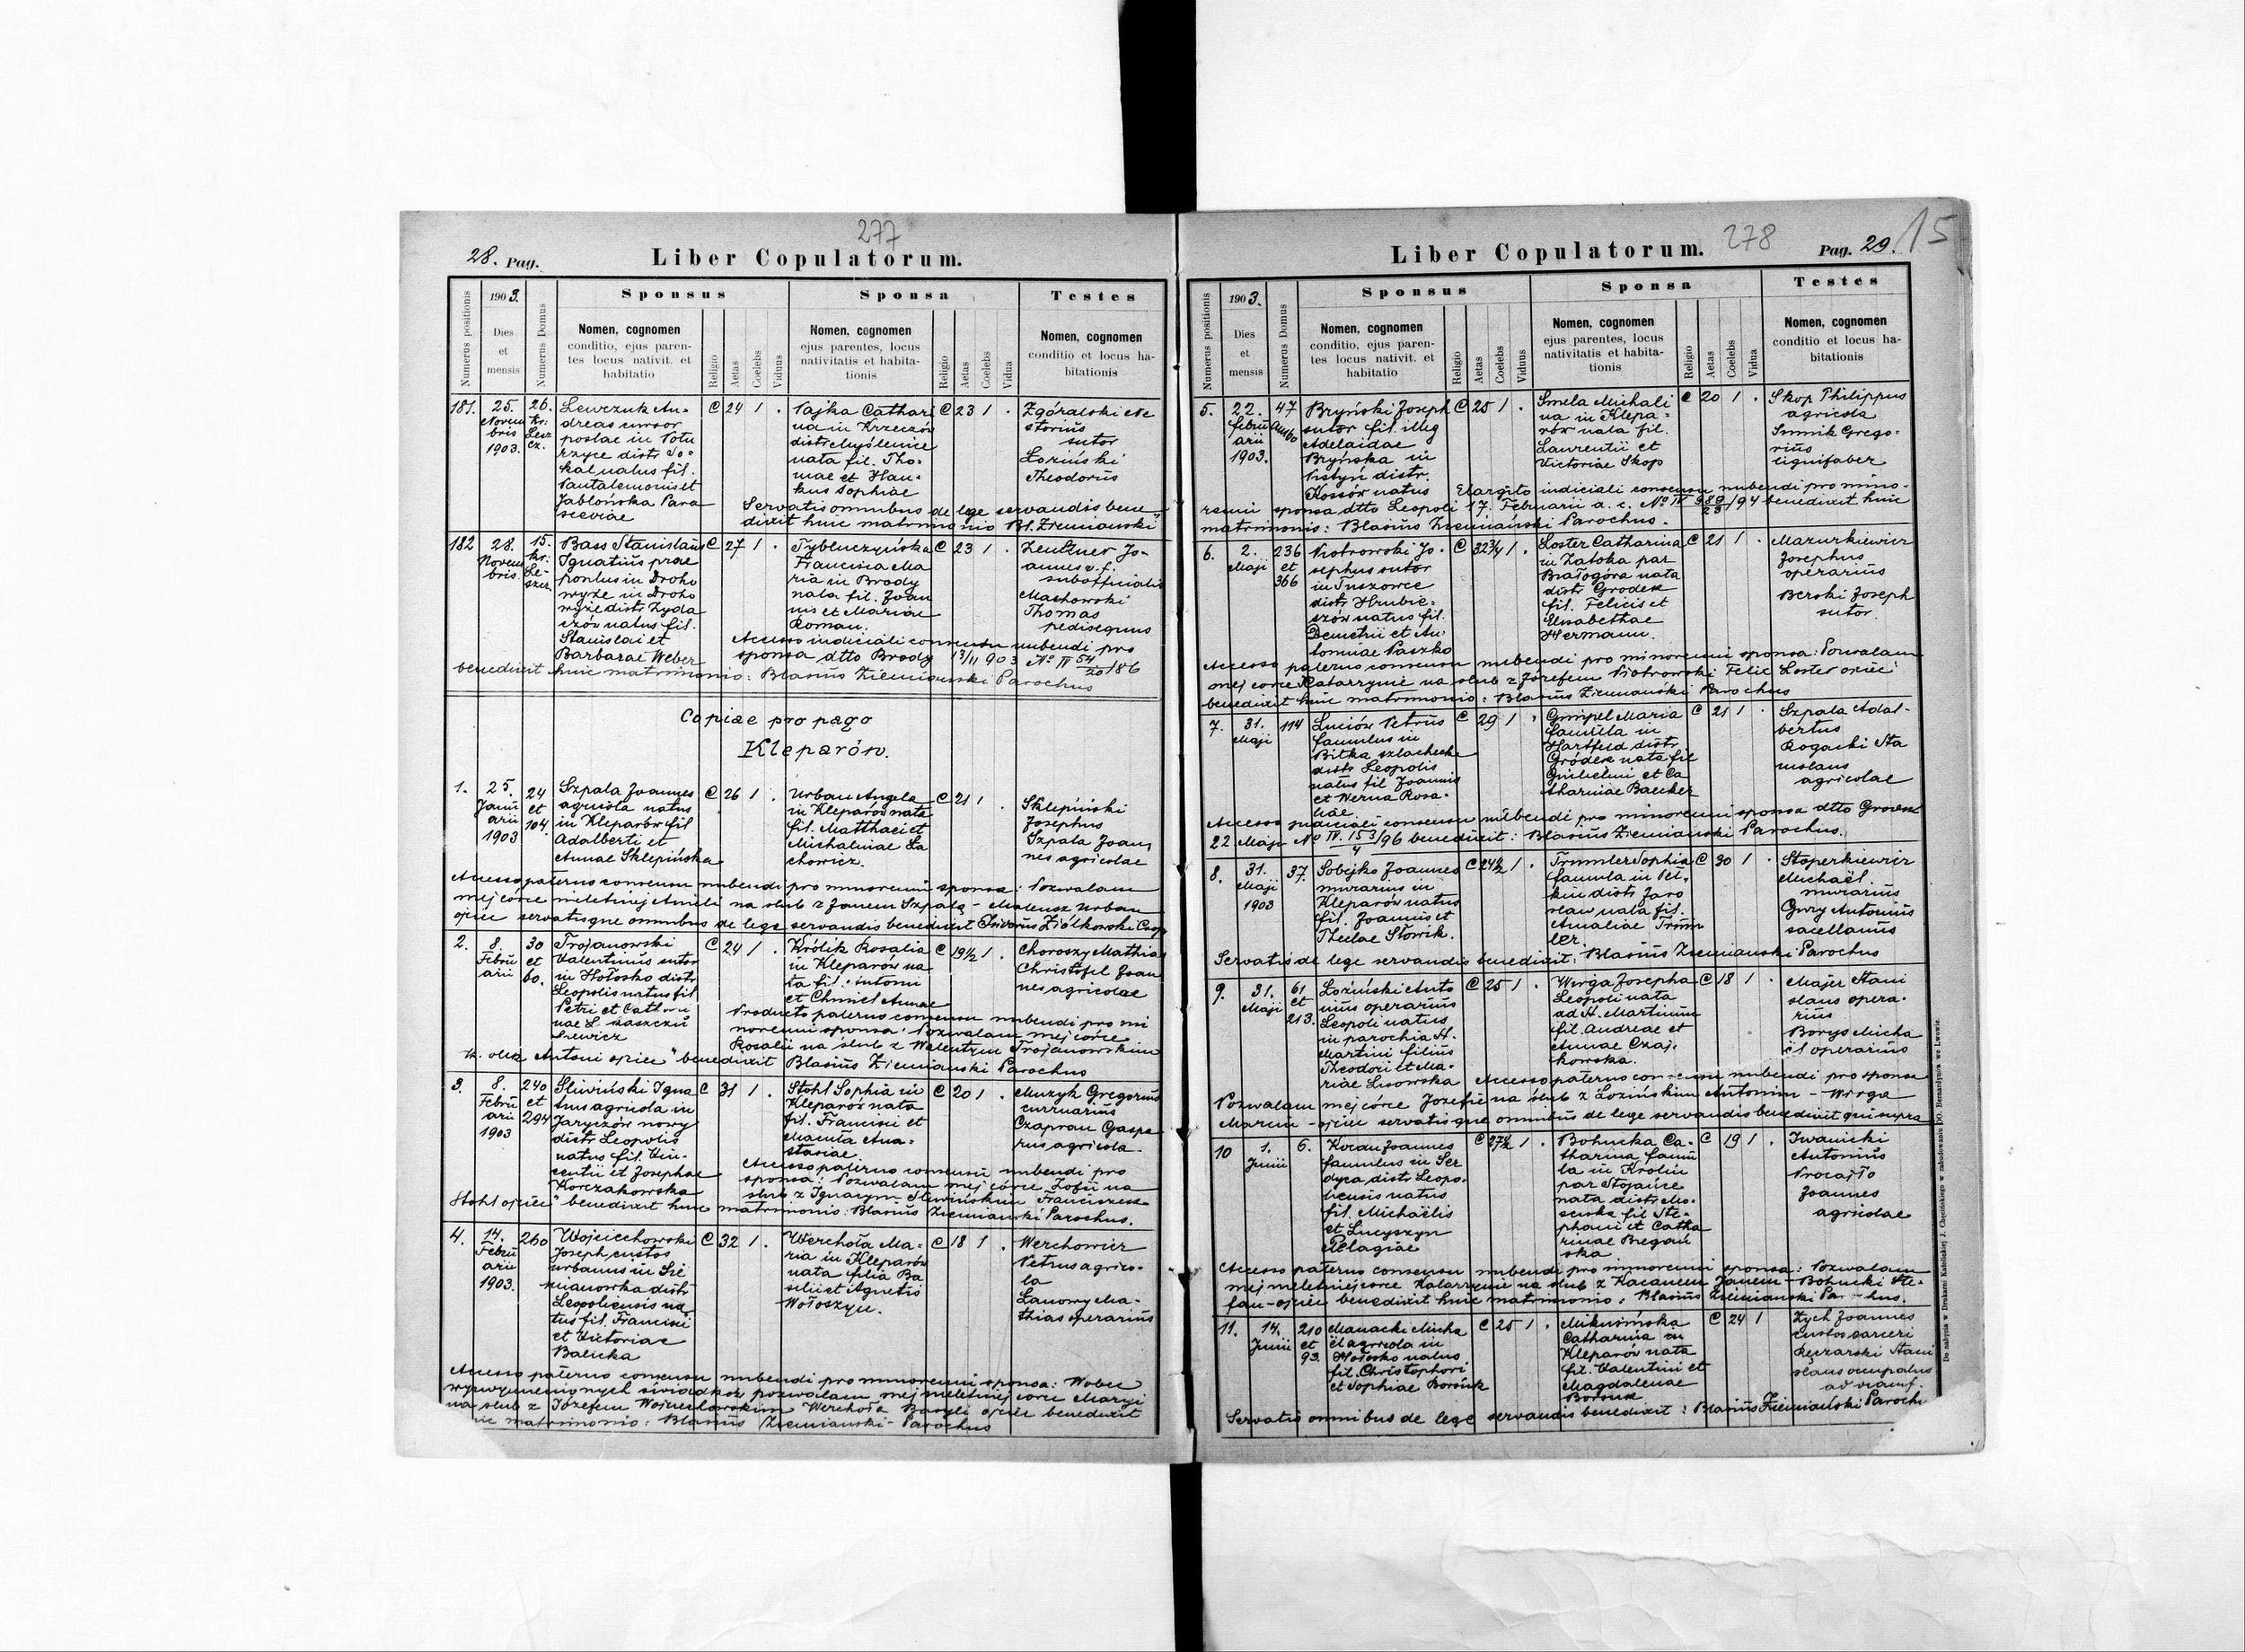 277
28. Pag.
Liber Copulatorum.
Numerus positionis
1903.
Dies
et
mensis
Numerus Domus
Sponsus
Nomen, cognomen
conditio, ejus paren-
tes locus nativit. et
habitatio
Religio
Aetas
Coelebs
Viduus
Sponsa
Nomen, cognomen
ejus parentes, locus
nativitatis et habita-
tionis
Religio
Aetas
Coelebs
Vidua
Testes
Nomen, cognomen
conditio et locus ha-
bitationis
181.
25.
Novem
bris
1903.
26.
Kr:
Lesz
cz.
Lewczuk An-
dreas cursor
postae in Potu
rzyce distr So-
kal natus fil.
Pantalemonis et
Jabłońska Para
sceviae
C 24 1 .
Pajka Cathari
na in Krzeczów
distr Myślenice
nata fil. Tho-
mae et Han-
kus Sophiae
C 23 1 .
Zgóralski Ne
storius
sutor
Łoziński
Theodorus
Servatis omnibus de lege servandis bene
dixit huic matrimonio Bl. Ziemiański
182
28.
Novem
bris.
15.
kr:
Le-
szcz.
Bass Stanislaus
Ignatius prae
positus in Droho
wyże in Droho
wyże distr Żyda
czów natus fil.
Stanislai et
Barbarae Weber
C 27 1 .
Tybluczyńska
Francisca Ma
ria in Brody
nata fil. Joan
nis et Mariae
Roman.
C 23 1 .
Zentner Jo-
annes v. f.
subofficialis
Machowski
Thomas
pedisequus
Accesso iudiciali consensu nubendi pro
sponsa dtto Brody 13/11 903 No IV 54/20/186
benedixit huic matrimonio: Blasius Ziemiański Parochus
Copiae pro pago
Kleparów.
1.
25.
Janu
arii
1903
24
et
104.
Szpala Joannes
agricola natus
in Kleparów fil
Adalberti et
Annae Sklepińska
C 26 1 .
Urban Angela
in Kleparów nata
fil. Matthaei et
Michalinae La
chowicz.
C 21 1 .
Sklepiński
Josephus
Szpala Joan
nes agricolae
Accesso paterno consensu nubendi pro minorenni sponsa: Pozwalam
mej córce nieletniej Anieli na ślub z Janem Szpalą - Mateusz Urban
ojciec servatisque omnibus de lege servandis benedixit Ziółkowski Coop
2.
8.
Febru
arii
30
et
60.
Trojanowski
Valentinus sutor
in Hołosko distr
Leopolis natus fil
Petri et Cathari
nae
C 24 1 .
Królik Rosalia
in Kleparów na
ta fil. Antonii
et Chmiel Annae
C 19½ 1 .
Choroszy Mathias
Christofel Joan
nes agricolae
Producto paterno consensu nubendi pro mi
norenni sponsa: Pozwalam mej córce
Rosalii na ślub z Walentym Trojanowskim
Antoni ojciec" benedixit Blasius Ziemiański Parochus
3.
8.
Febru
arii
1903
240
et
294
Śliwiński Igna
tius agricola in
Jaryczów nowy
distr Leopolis
natus fil. Vin-
centii et Josephae
Korczakowska
C 31 1 .
Stohl Sophia in
Kleparów nata
fil. Francisci et
Macuła Ana-
stasiae
C 20 1 .
Muzyk Gregorius
curruarius
Czapran Gaspa
rus agricola
Accesso paterno consensu nubendi pro
sponsa: Pozwalam mej córce Zofii na
ślub z Ignacym Śliwińskim Franciszek
Stohl ojciec" benedixit huic matrimonio: Blasius Ziemiański Parochus.
4.
14.
Febru
arii
1903.
260
Wojciechowski
Joseph custos
urbanus in Sie
mianówka distr
Leopoliensis na
tus fil. Francisci
et Victoriae
Balicka
C 32 1 .
Werchoła Ma-
ria in Kleparów
nata filia Ba
silii et Agnetis
Wołoszyn.
C 18 1 .
Werchowicz
Petrus agrico-
la
Łanowy Ma-
thias operarius
Accesso paterno consensu nubendi pro minorenni sponsa: Wobec
wyżwymienionych świadków pozwalam mej nieletniej córce Maryi
na ślub z Józefem Wojciechowskim Werchoła Bazyli ojciec benedixit
matrimonio: Blasius Ziemiański - Parochus
Liber Copulatorum.
278
Pag. 29.
15
Numerus positionis
1903.
Dies
et
mensis
Numerus Domus
Sponsus
Nomen, cognomen
conditio, ejus paren-
tes locus nativit. et
habitatio
Religio
Aetas
Coelebs
Viduus
Sponsa
Nomen, cognomen
ejus parentes, locus
nativitatis et habita-
tionis
Religio
Aetas
Coelebs
Vidua
Testes
Nomen, cognomen
conditio et locus ha-
bitationis
5.
22.
febru
arii
1903.
47
Ambo
Bryński Joseph
sutor fil. illeg
Adelaidae
Bryńska in
Pistyń distr.
Kossów natus
C 25 1 .
Smela Michali
na in Klepa-
rów nata fil.
Laurentii et
Victoriae Skop
C 20 1 .
Skop Philippus
agricola
Smnik Grego-
rius
lignifaber
Elargito iudiciali consensu nubendi pro mino-
renni sponsa dtto Leopoli 17. Februarii a. c. No IV 989/23/94 benedixit huic
matrimonio: Blasius Ziemiański Parochus.
6.
2.
Maji
236
et
366
Piotrowski Jo-
sephus sutor
in Tuszowce
distr Hrubie-
szów natus fil.
Demetrii et An
toninae Paszko
C 32¾ 1 .
Loster Catharina
in Zatoka par
Białogóra nata
distr Gródek
fil. Felicis et
Elisabethae
Hermann.
C 21 1 .
Mazurkiewicz
Josephus
operarius
Berski Joseph
sutor
Accesso paterno consensu nubendi pro minorenni sponsa: Pozwalam
mej córce Katarzynie na ślub z Józefem Piotrowski Felic Loster ojciec
benedixit huic matrimonio: Blasius Ziemiański Parochus
7.
31.
Maji
114
Luciów Petrus
famulus in
Biłka szlachecka
distr Leopolis
natus fil Joannis
et Werna Rosa-
liae.
C 29 1 .
Gimpel Maria
famula in
Hartfeld distr
Gródek nata fil
Guilielmi et Ca
tharinae Baecker
C 21 1 .
Szpala Adal-
bertus
Rogacki Sta
nislaus
agricolae
Accesso judiciali consensu nubendi pro minorenni sponsa dtto Grodek
22. Maji No IV. 153/4/96 benedixit: Blasius Ziemiański Parochus.
8.
31.
Maji
1903
37.
Sobejko Joannes
murarius in
Kleparów natus
fil. Joannis et
Theclae Słowik.
C 24½ 1 .
Trimmler Sophia
famula in Peł-
kin distr Jaro
slau nata fil.
Amaliae Trimm
ler.
C 30 1 .
Stoperkiewicz
Michaël.
murarius
Gury Antonius
sacellanus
Servatis de lege servandis benedixit: Blasius Ziemiański Parochus
9.
31.
Maji
61
et
213.
Łoziński Anto
nius operarius
Leopoli natus
in parochia St.
Martini filius
Theodori et Ma-
riae Lisowska
C 25 1 .
Wirga Josepha
Leopoli nata
ad St. Martinum
fil. Andreae et
Annae Czaj-
kowska.
C 18 1 .
Majer Stani
slaus opera-
rius
Borys Micha
ël operarius
Accesso paterno consensu nubendi pro sponsa
Pozwalam mej córce Józefie na ślub z Łozińskim Antonim - Wirga
Marcin - ojciec servatisque omnibus de lege servandis benedixit qui supra
10
1.
Junii
6.
Kocan Joannes
famulus in Ser
dyca distr Leopo-
liensis natus
fil. Michaëlis
et Lucyszyn
Pelagiae
C 27½ 1 .
Bohucka Ca-
tharina famu
la in Krolin
par Stojańce
nata distr Mo-
sciska fil Ste-
phani et Catha
rinae Biegań
ska
C 19 1 .
Iwanicki
Antonius
Procajło
Joannes
agricolae
Accesso paterno consensu nubendi pro minorenni sponsa: Pozwalam
mej nieletniej córce Katarzynie na ślub z Kocanem Janem - Bohucki Ste-
fan - ojciec benedixit huic matrimonio: Blasius Ziemiański Par - hus.
11.
14.
Junii
210
et
93.
Manacki Micha
ël agricola in
Hołosko natus
fil. Christophori
et Sophiae Borsuk
C 25 1 .
Mikusińska
Catharina in
Kleparów nata
fil. Valentini et
Magdalenae
Borsuk
C 24 1
Zych Joannes
custos carceri
Ręczarski Stani
slaus occupatus
ad viamf.
Servatis omnibus de lege servandis benedixit: Blasius Ziemiański Paroch
Do nabycia w Drukarni Katolickiej J. Chęcińskiego w zabudowaniu OO. Bernardynów we Lwowie.